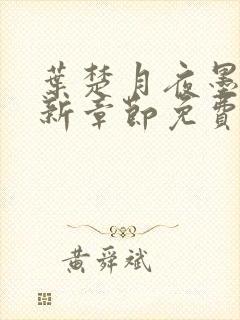 葉楚月夜墨
新章節免費
黃舜斌